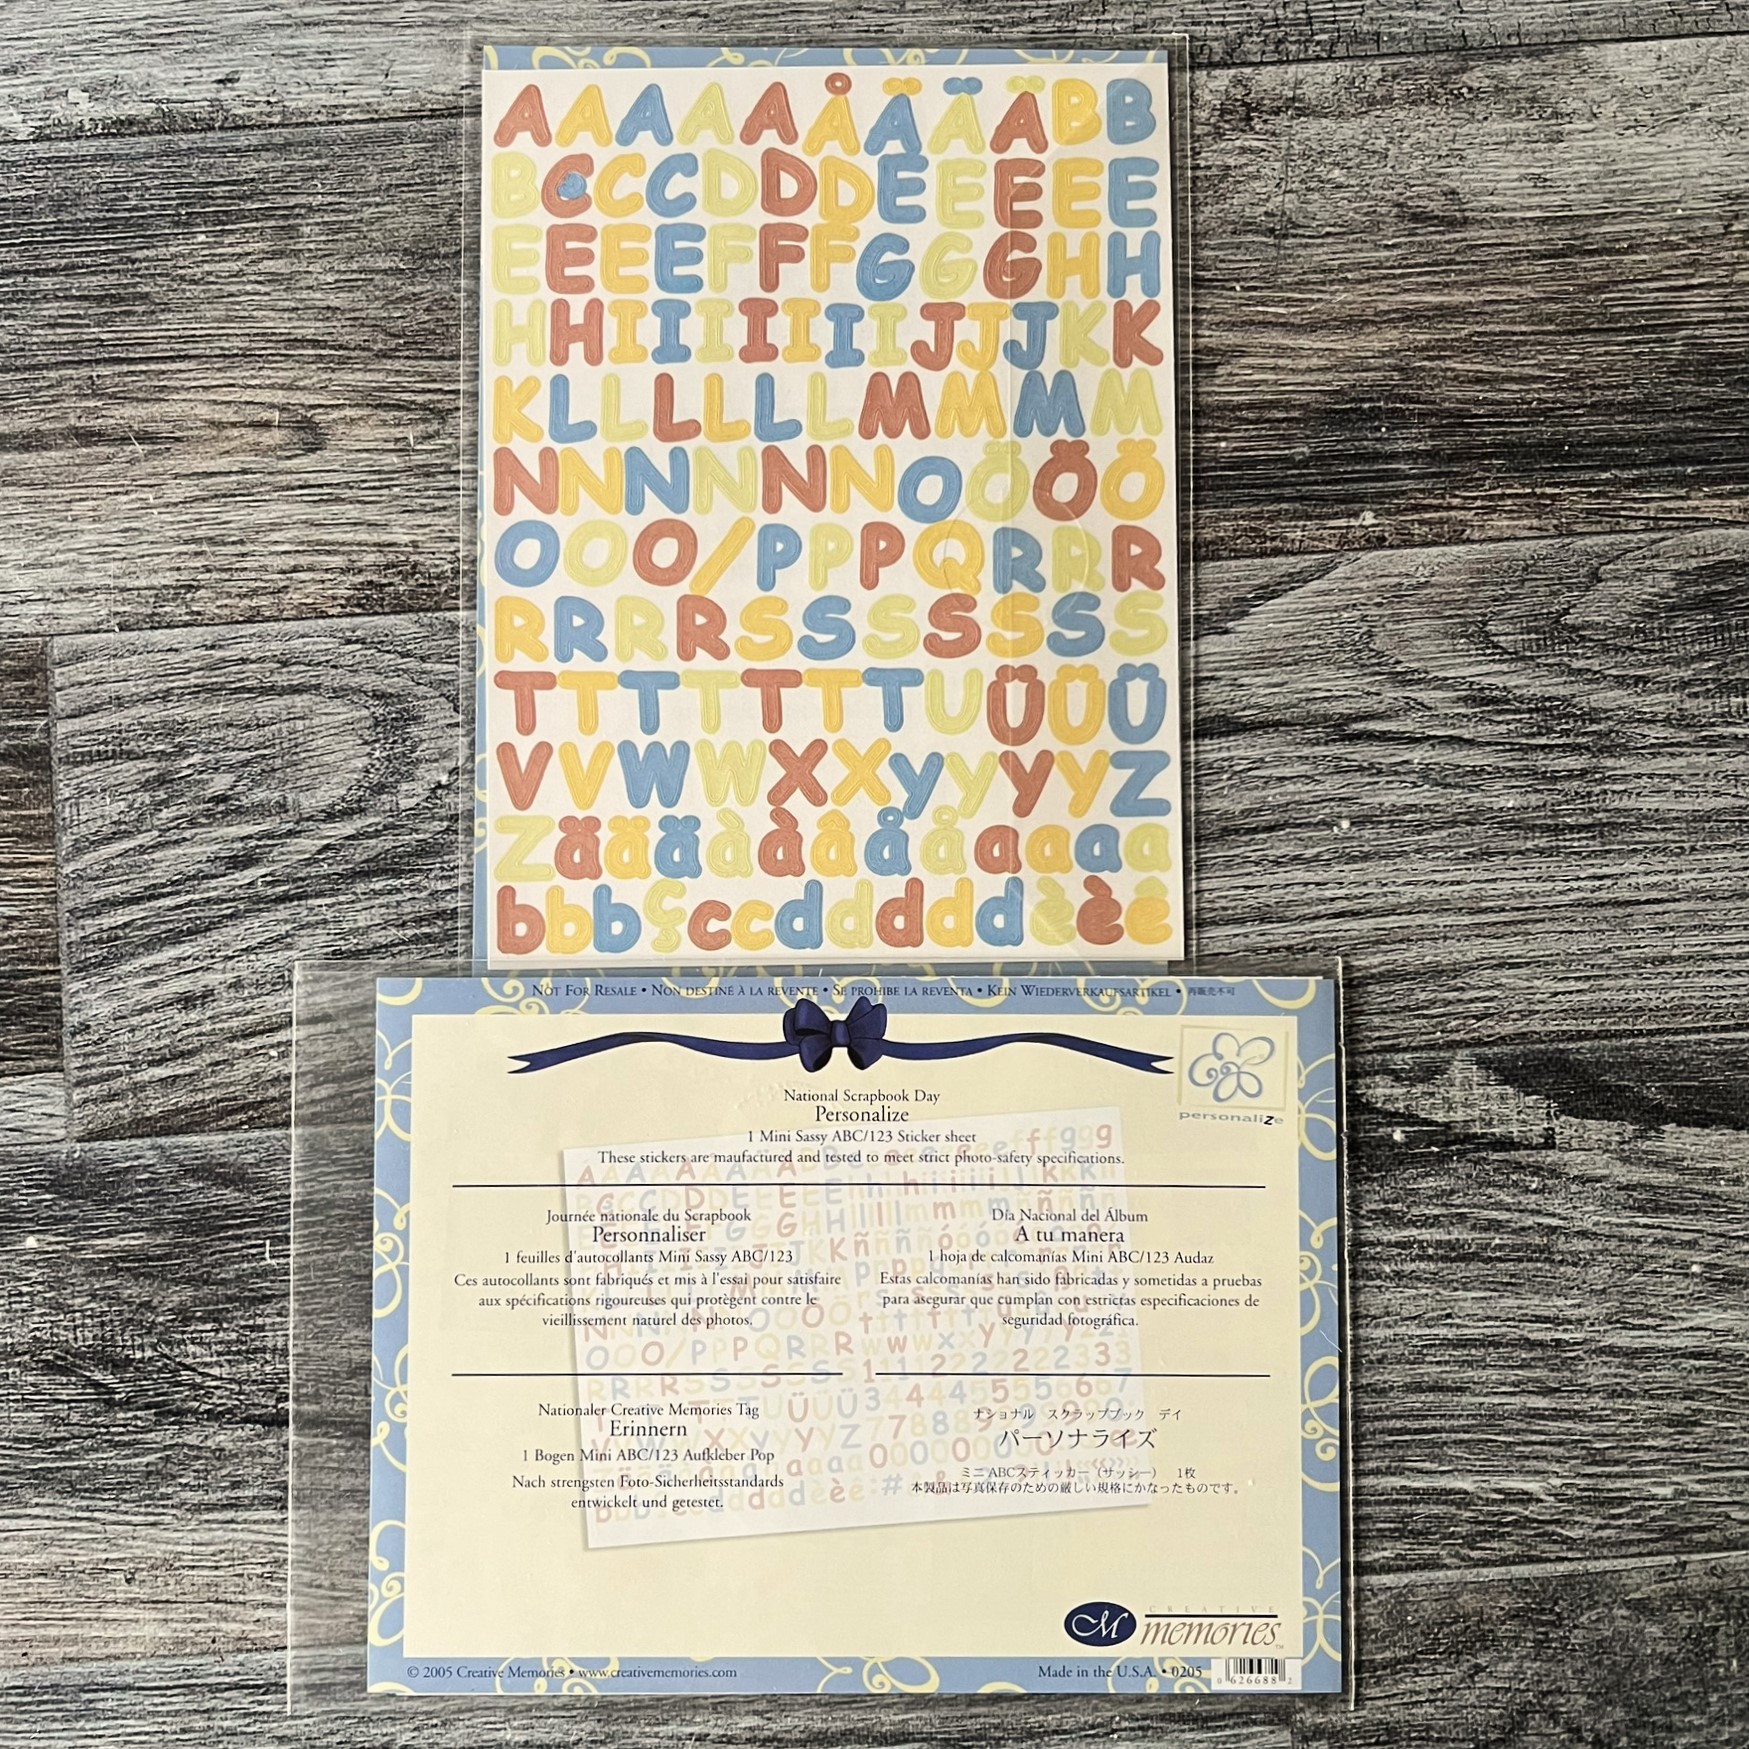 A A A A A Å Ä Ä Ä B B
B C C C D D D E E E E E
E E E E F F F G G G H H
H H I I I I I I I J J J K K
K L L L L L L M M M M
N N N N N N O Ö Ö Ö
O O O / P P P Q R R R
R R R R S S S S S S S
T T T T T T T U Ü Ü Ü
V V W W X X y y y y Z
Z ä ä ä à à â å å a a a a
b b b ç c c d d d d d è è ê
NOT FOR RESALE • NON DESTINÉ À LA REVENTE • SE PROHIBE LA REVENTA • KEIN WIEDERVERKAUFSARTIKEL • 再販売不可
personaliZe
National Scrapbook Day
Personalize
1 Mini Sassy ABC/123 Sticker sheet
These stickers are maufactured and tested to meet strict photo-safety specifications.
Journée nationale du Scrapbook
Personnaliser
1 feuilles d'autocollants Mini Sassy ABC/123
Ces autocollants sont fabriqués et mis à l'essai pour satisfaire
aux spécifications rigoureuses qui protègent contre le
vieillissement naturel des photos.
Día Nacional del Álbum
A tu manera
1 hoja de calcomanías Mini ABC/123 Audaz
Estas calcomanías han sido fabricadas y sometidas a pruebas
para asegurar que cumplan con estrictas especificaciones de
seguridad fotográfica.
Nationaler Creative Memories Tag
Erinnern
1 Bogen Mini ABC/123 Aufkleber Pop
Nach strengsten Foto-Sicherheitsstandards
entwickelt und getestet.
ナショナル スクラップブック デイ
パーソナライズ
ミニ ABCスティッカー（サッシー） 1枚
本製品は写真保存のための厳しい規格にかなったものです。
CM
CREATIVE
memories™
© 2005 Creative Memories • www.creativememories.com
Made in the U.S.A. • 0205
0 626688 2